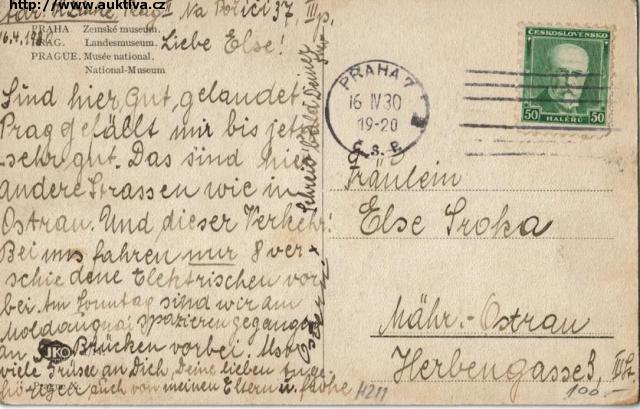 www.auktiva.cz
Prag II Na Poříčí 37, III p.
16.4.1930
PRAHA. Zemské museum.
PRAG. Landesmuseum.
PRAGUE. Musée national.
National-Museum
Liebe Else!
Sind hier gut gelandet.
Prag gefällt mir bis jetzt
sehr gut. Das sind hier
andere Strassen wie in
Ostrau. Und dieser Verkehr!
Bei uns fahren nur 8 ver-
schiedene Elektrischen vor-
bei. Am Sonntag sind wir am
Moldauquai spazieren gegangen
an Brücken vorbei.
viele Grüsse an Dich, Deine lieben Ange-
hörigen auch von meinen Eltern u. frohe
Ostern
Schreib bald Deiner
ČESKOSLOVENSKO
50 HALÉŘŮ 50
PRAHA 7
16 IV 30
19-20
Č.S.P.
Fräulein
Else Sroka
Mähr.-Ostrau
Herbengasse 3,
JKO
H211
100.-